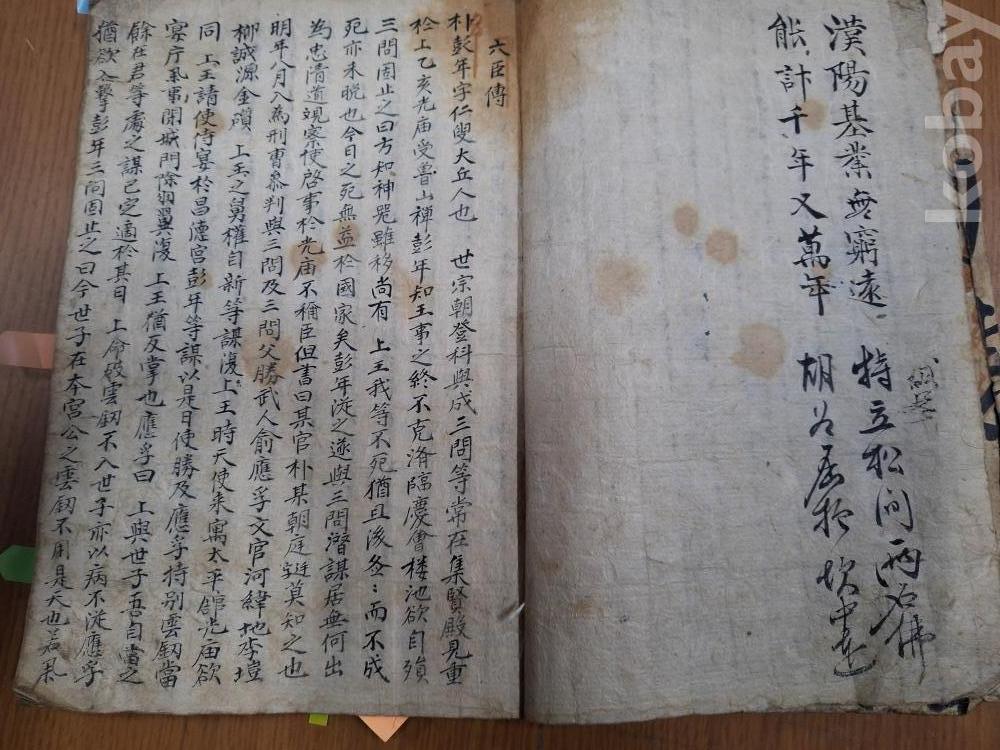 漢陽基業無窮遠 特立松间兩石佛
能計千年又萬年 胡为居於坎中
kobay
六臣傳
朴彭年字仁叟大丘人也 世宗朝登科與成三問等常在集賢殿見重
於上乙亥光庙受魯山禅彭年知王事之終不克済臨慶會楼池欲自殞
三問固止之曰方知神器雖移尚有 上王我等不死猶且後啚々而不成
死亦未晩也今日之死無益於國家矣彭年從之遂與三問潜謀居無何出
為忠清道观察使啓事於光庙不稱臣但書曰某官朴某朝庭莫知之也
明年八月入為刑曹叅判與三問及三問父勝武人俞應孚文官河緯地李塏
柳誠源金礩 上王之舅權自新等謀復上王時天使来寓太平舘光庙欲
同 上王請使侍宴於昌德宮彭年等謀以是日使勝及應孚持别雲釰當
宴庁焉事閉城門除羽翼復 上王猶反掌也應孚曰 上與世子吾自當之
餘在君等處之謀已定適於其日 上命殺雲釰不入世子亦以病不從應孚
猶欲入擊彭年三問固止之曰今世子在本宮公之雲釰不用是天也若